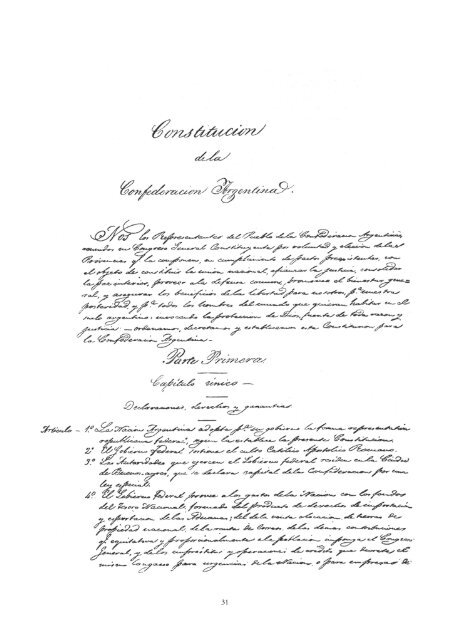 Constitucion
de la
Confederacion Argentina.
Nós los Representantes del Pueblo de la Confederacion Argentina,
reunidos en Congreso General Constituyente por voluntad y eleccion de las
Provincias q.e la componen, en cumplimiento de pactos preexistentes, con
el objeto de constituir la union nacional, afianzar la justicia, consolidar
la paz interior, proveer a la defensa comun, promover el bienestar gene-
ral, y asegurar los beneficios de la libertad para nosotros, p.a nuestra
posteridad, y p.a todos los hombres del mundo que quieran habitar en el
suelo argentino: invocando la proteccion de Dios, fuente de toda razon y
justicia – ordenamos, decretamos y establecemos esta Constitucion para
la Confederacion Argentina –
Parte Primera.
Capítulo único –
Declaraciones, derechos y garantias
Artículo – 1.o La Nacion Argentina adopta p.a su gobierno la forma representativa
republicana federal, segun la establece la presente Constitucion.
2.o El Gobierno Federal sostiene el culto Católico Apostólico Romano.
3.o Las Autoridades que ejercen el Gobierno federal residen en la Ciudad
de Buenos-ayres, que se declara capital de la Confederacion por una
ley especial.
4.o El Gobierno Federal provee a los gastos de la Nacion con los fondos
del Tesoro Nacional, formado del producto de derechos de importación
y esportacion de las Aduanas; del de la venta o locacion de tierras de
propiedad nacional, de la renta de Correos, de las demas contribuciones
q.e equitativa y proporcionalmente a la poblacion imponga el Congreso
General, y de los empréstitos y operaciones de crédito que decrete el
mismo Congreso para urgencias de la Nacion o para empresas de
31